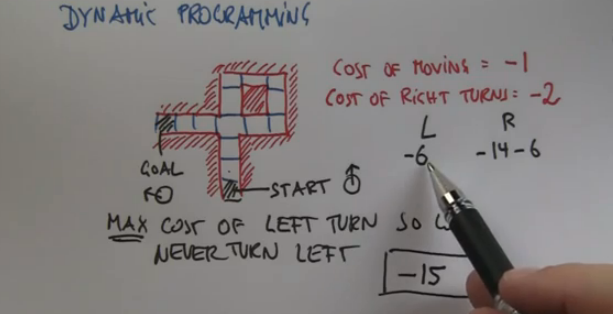 DYNAMIC PROGRAMMING
COST OF MOVING = -1
COST OF RIGHT TURNS: -2
L R
-6 -14-6
GOAL
START
MAX COST OF LEFT TURN SO
NEVER TURN LEFT
-15